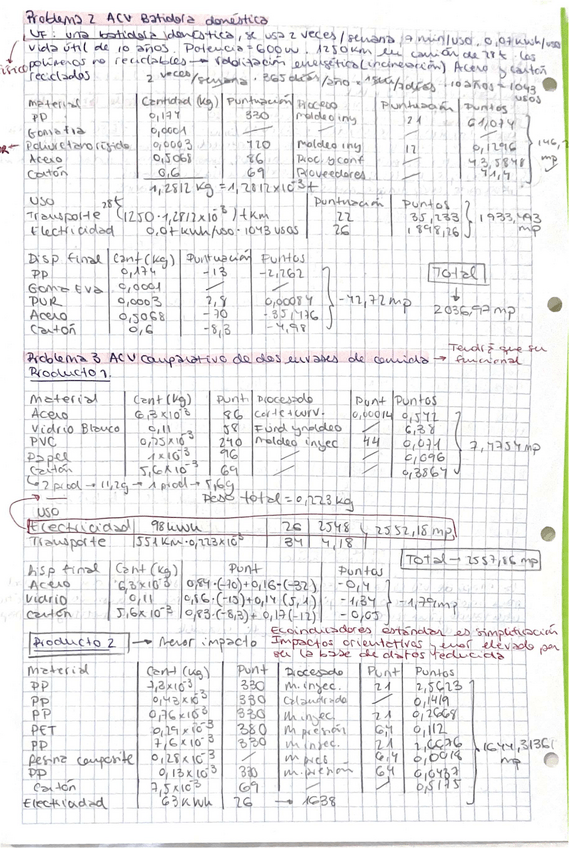 Problema 2 ACV Batidora doméstica
UF: una batidora doméstica, se usa 2 veces/semana, 7 min/uso, 0,07 kWh/uso
vida útil de 10 años. Potencia = 600w. 1250km en camión de 28t. los
polímeros no reciclables → valorización energética (incineración) Acero y cartón
reciclados
2 veces/semana · 365 días/año · 10 años = 1043 usos
Material Cantidad (kg) Puntuación Proceso Puntuación Puntos
PP 0,174 330 Moldeo iny 21 61,074
Goma Eva 0,0001 / / /
Poliuretano rígido 0,0003 420 Moldeo iny 12 0,1296
Acero 0,5068 86 Proc. y conf 43,5848
Cartón 0,6 69 Proveedores 41,4
1,2812 kg = 1,2812x10⁻³t
USO Puntuación Puntos
28t
Transporte (1250·1,2812x10⁻³) tkm 22 35,233
Electricidad 0,07 kWh/uso · 1043 usos 26 1898,26
1933,493 mp
Disp final Cant (kg) Puntuación Puntos
PP 0,174 -13 -2,262
Goma Eva 0,0001 / /
PUR 0,0003 2,8 0,00084
Acero 0,5068 -70 -35,476
Cartón 0,6 -8,3 -4,98
-42,72 mp
Total
↓
2036,97 mp
Problema 3 ACV comparativo de dos envases de comida → Tendrá que ser
funcional
Producto 1.
Material Cant (kg) Punt Procesado Punt Puntos
Acero 6,3x10⁻³ 86 Corte + curv. 0,00014 0,542
Vidrio Blanco 0,11 58 Fund y moldeo / 6,38
PVC 0,75x10⁻³ 240 moldeo inyec 44 0,071
Papel 1x10⁻³ 96 / / 0,096
Cartón 5,6x10⁻³ 69 / / 0,3864
7,4754 mp
↳ 2 prod → 11,2g → 1 prod → 5,6g
Peso total = 0,223 kg
USO
Electricidad 98 kWh 26 2548
Transporte 551 km · 0,223x10⁻³ 34 4,18
2552,18 mp
Total → 2557,86 mp
Disp final Cant (kg) Punt Puntos
Acero 6,3x10⁻³ 0,84·(-70)+0,16·(-32) -0,4
Vidrio 0,11 0,86·(-15)+0,14(5,1) -1,34
Cartón 5,6x10⁻³ 0,83·(-8,3)+0,17(-12) -0,05
-1,79 mp
Producto 2 → Menor impacto
Ecoindicadores estándar es simplificación
Impactos orientativos y error elevado por
ser la base de datos reducida
Material Cant (kg) Punt Procesado Punt Puntos
PP 7,3x10⁻³ 330 m.inyec. 21 2,5623
PP 0,43x10⁻³ 330 Calandrado / 0,1419
PP 0,76x10⁻³ 330 m.inyec. 21 0,2668
PET 0,29x10⁻³ 380 m.presión 6,4 0,112
PP 7,6x10⁻³ 330 m.inyec. 21 2,6676
Resina composite 0,28x10⁻³ / m pres 6,4 0,0018
PP 0,13x10⁻³ 330 m.presión 6,4 0,0437
Cartón 7,5x10⁻³ 69 / / 0,5175
Electricidad 63 kWh 26 → 1638
1644,3136 mp